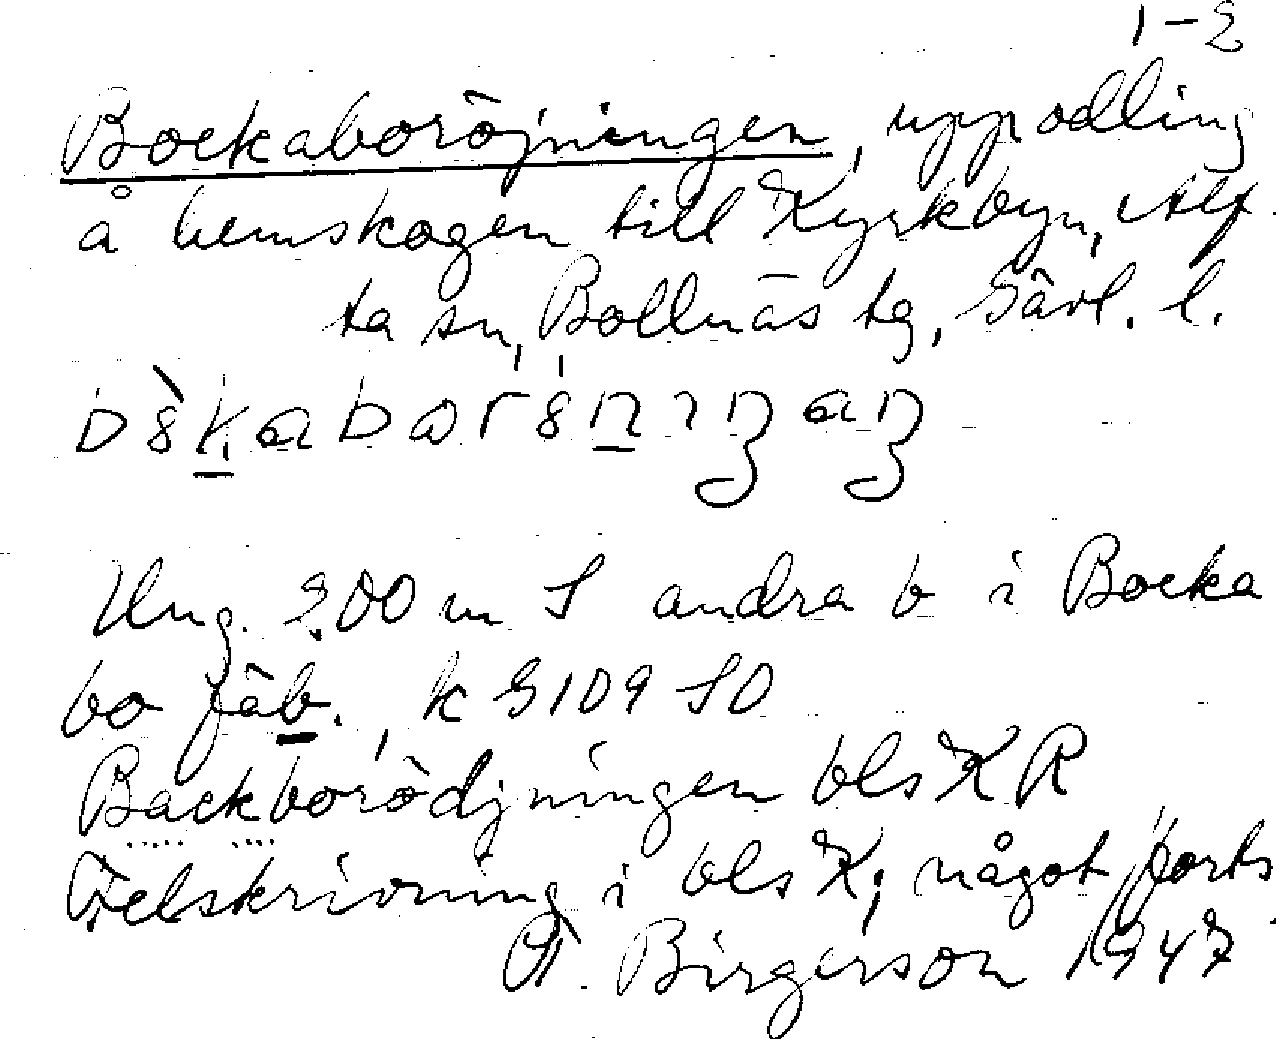 1-2
Bockaboröjningen, uppodling
å hemskogen till Kyrkbyn, Alf-
ta sn, Bollnäs tg, Gävl. l.
Ung. 200 m S andra b i Bocka
bo fäb., k G109 SO
Backborödjningen bls K R
Felskrivning i bls K, något forts.
F. Birgerson 1947